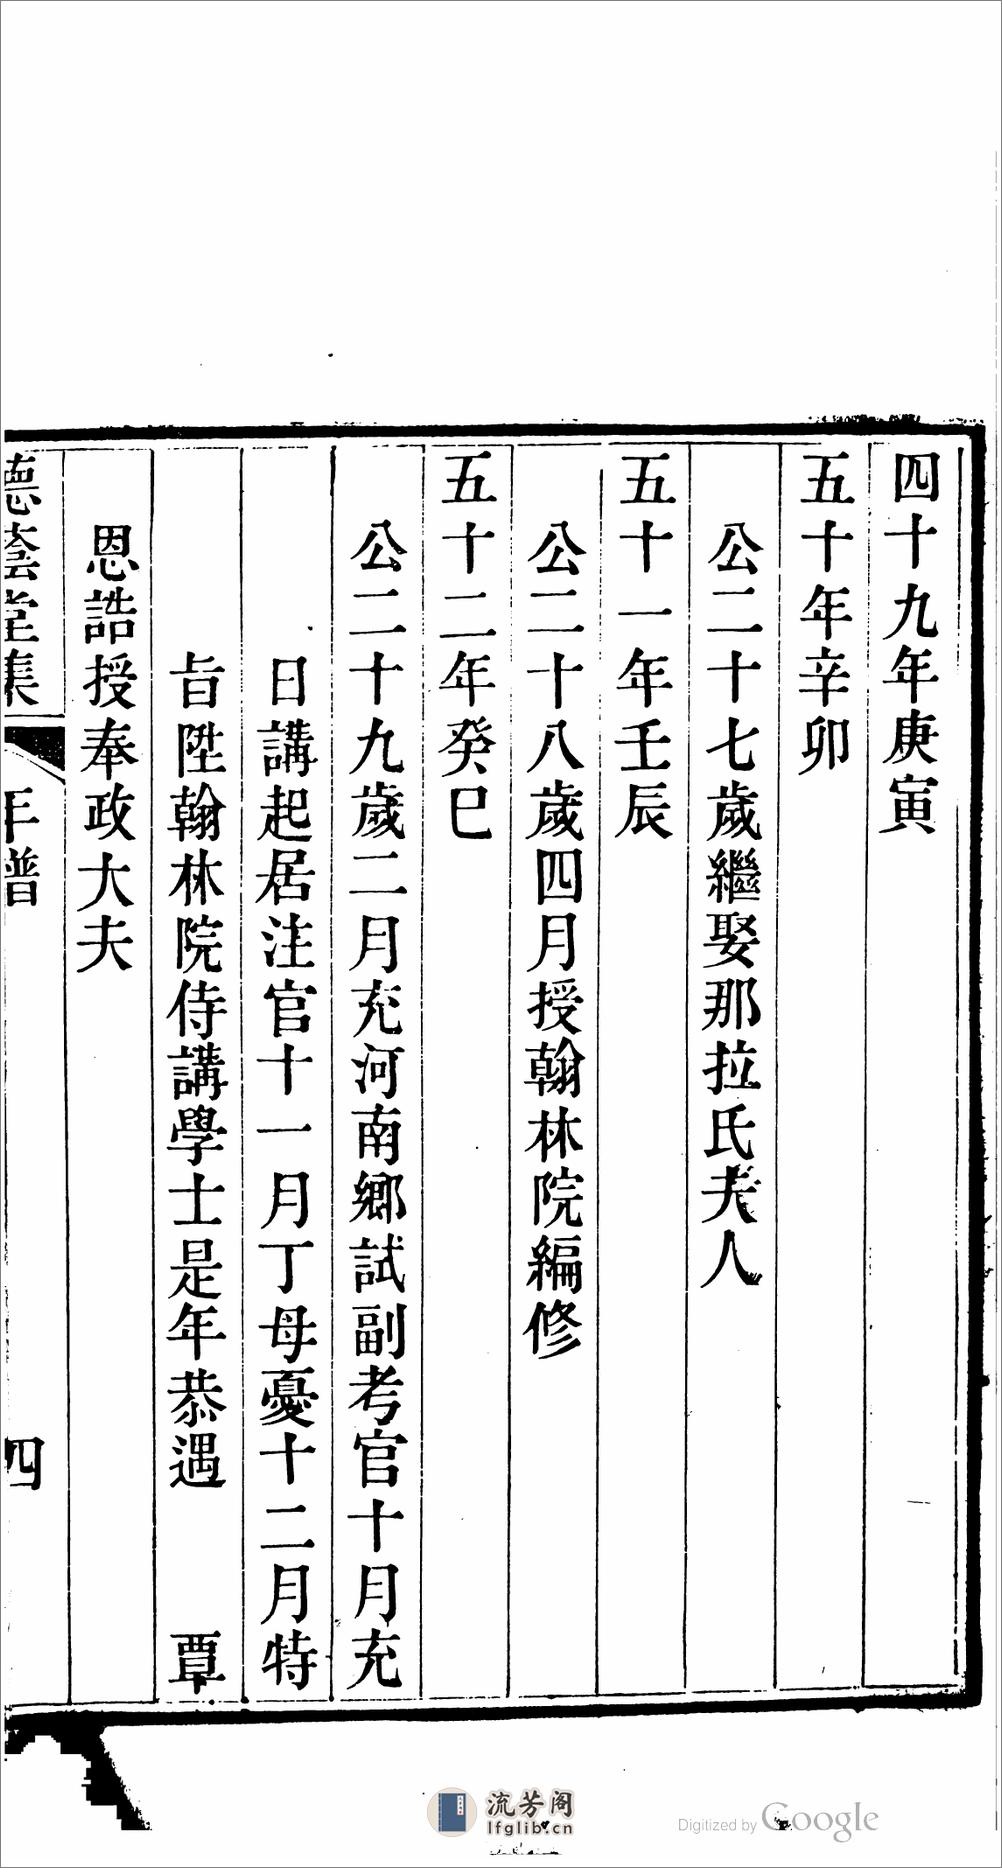 四十九年庚寅
五十年辛卯
公二十七歲繼娶那拉氏夫人
五十一年壬辰
公二十八歲四月授翰林院編修
五十二年癸巳
公二十九歲二月充河南鄉試副考官十月充
日講起居注官十一月丁母憂十二月特
旨陞翰林院侍講學士是年恭遇 覃
恩誥授奉政大夫
德蔭堂集 年譜 四
流芳阁
lfglib.cn
Digitized by Google